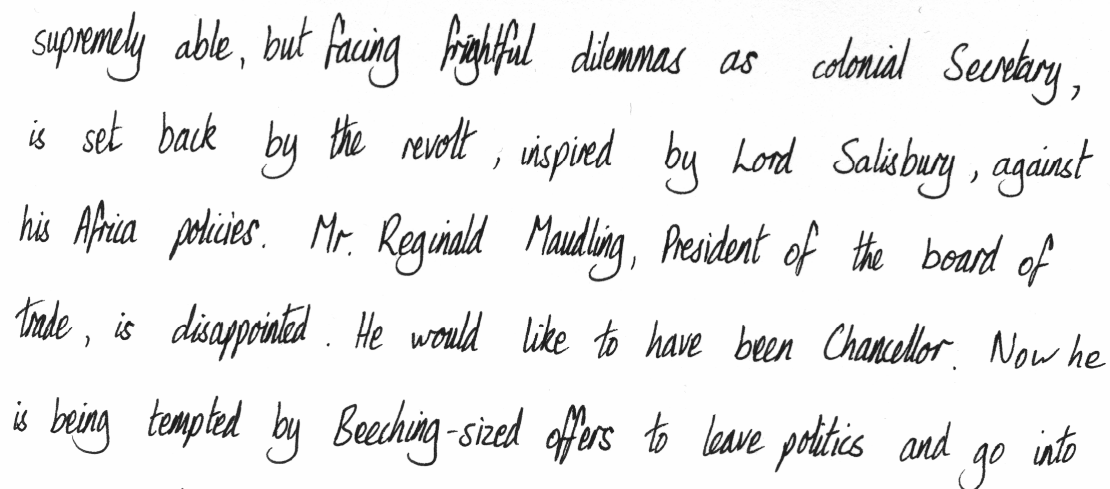 supremely able, but facing frightful dilemmas as colonial Secretary,
is set back by the revolt, inspired by Lord Salisbury, against
his Africa policies. Mr. Reginald Maudling, President of the board of
trade, is disappointed. He would like to have been Chancellor. Now he
is being tempted by Beeching-sized offers to leave politics and go into